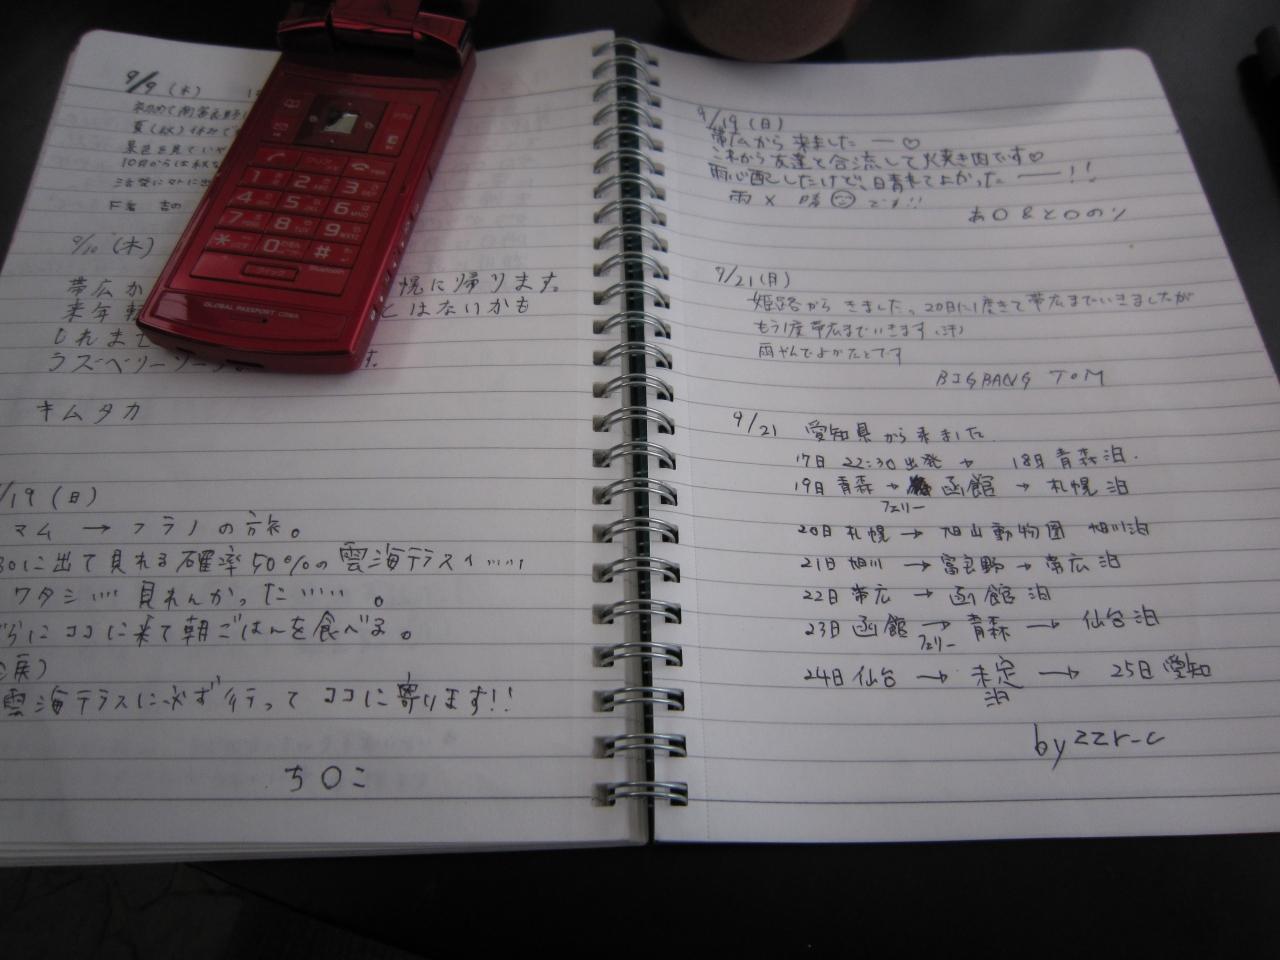 9/9 (水)
9/10 (木)
帯広か
幌に帰ります。
来年
とはないかも
しれませ
ラズベリーソー
す。
キムタカ
/19 (日)
マム → フラノの旅。
30に出て見れる確率50%の雲海テラスへ……
ワタシ…… 見れんかった…… 。
さらにココに来て朝ごはんを食べる。
雲海テラスに必ず行って ココに寄ります!!
ち〇こ
9/19 (日)
帯広から 来ました ー♡
これから友達と合流して火焼き肉です♡
雨心配したけど、晴れてよかった ー!!
雨 × 晴 です!!
あ〇&と〇の
9/21(月)
姫路から きました。20日に1度きて帯広までいきましたが
もう1度帯広までいきます(汗)
雨やんでよかたとです
BIGBANG TOM
9/21 愛知県から来ました
17日 22:30出発 → 18日 青森泊.
19日 青森 → 函館 → 札幌 泊
フェリー
20日 札幌 → 旭山動物園 旭川泊
21日 旭川 → 富良野 → 帯広 泊
22日 帯広 → 函館 泊
23日 函館 → 青森 → 仙台泊
フェリー
24日 仙台 → 未定 → 25日 愛知
泊
by zzr-c
1 2 3
4 5 6
7 8 9
* 0 #
クリア
GLOBAL PASSPORT CDMA